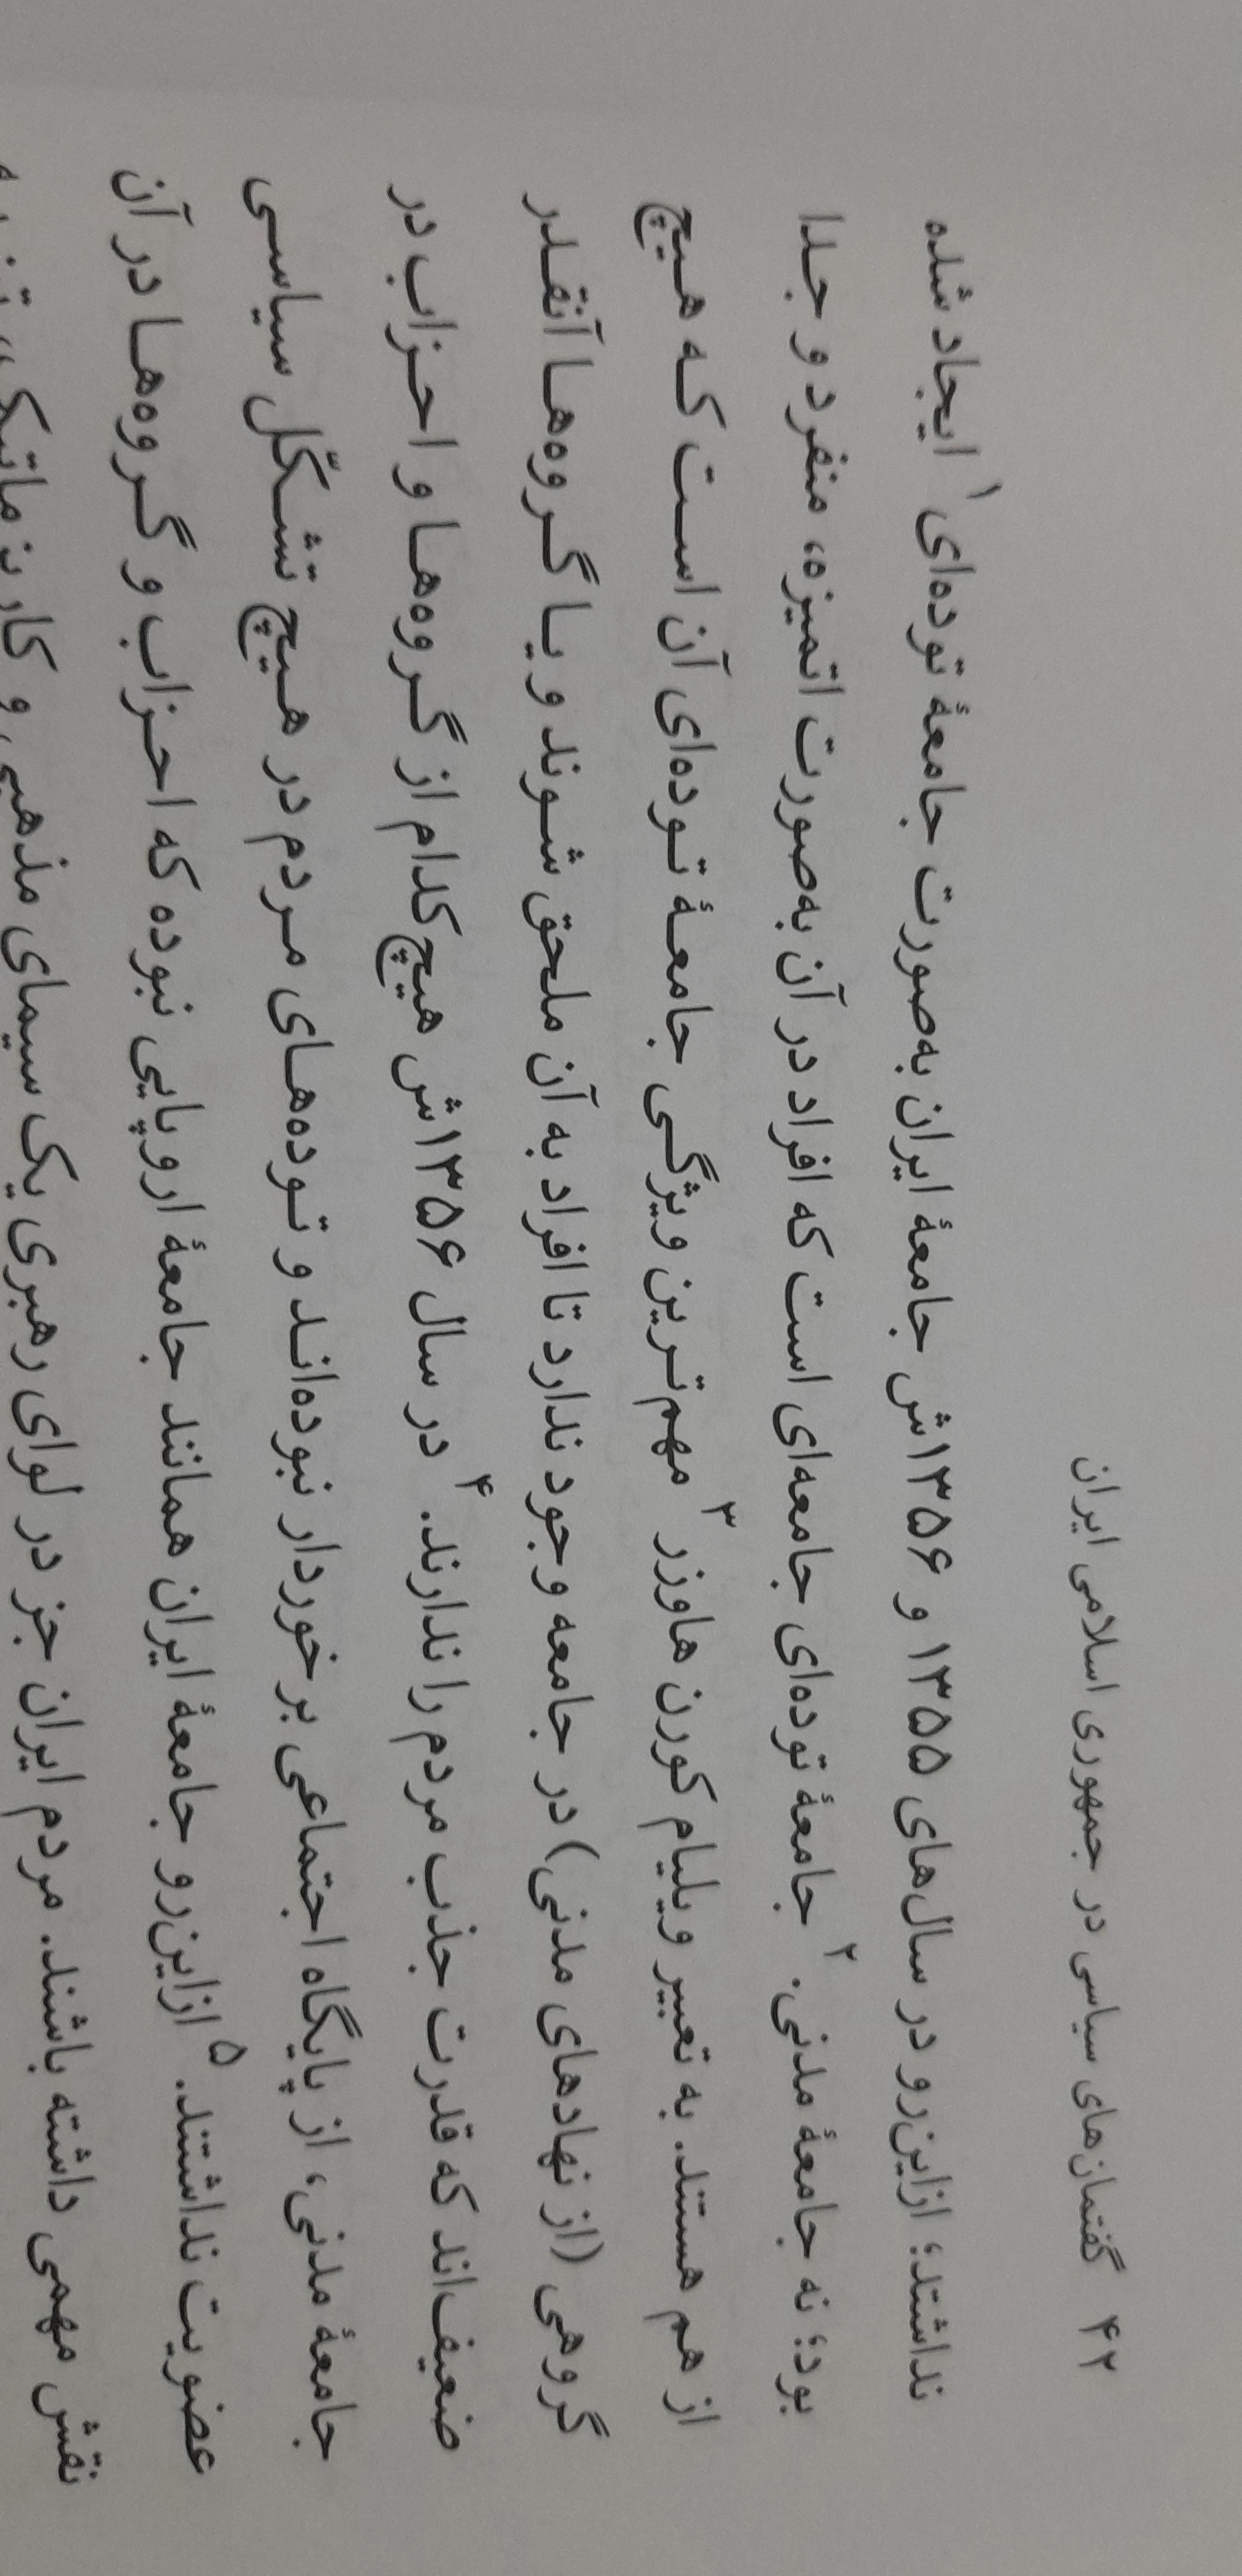 ۴۲ گفتمان‌های سیاسی در جمهوری اسلامی ایران
نداشتند؛ ازاین‌رو در سال‌های ۱۳۵۵ و ۱۳۵۶ش جامعهٔ ایران به‌صورت جامعهٔ توده‌ای۱ ایجاد شده
بود؛ نه جامعهٔ مدنی.۲ جامعهٔ توده‌ای جامعه‌ای است که افراد در آن به‌صورت اتمیزه، منفرد و جدا
از هم هستند. به تعبیر ویلیام کورن هاوزر۳ مهم‌ترین ویژگی جامعهٔ توده‌ای آن است که هیچ
گروهی (از نهادهای مدنی) در جامعه وجود ندارد تا افراد به آن ملحق شوند و یا گروه‌ها آنقدر
ضعیف‌اند که قدرت جذب مردم را ندارند.۴ در سال ۱۳۵۶ش هیچ‌کدام از گروه‌ها و احزاب در
جامعهٔ مدنی، از پایگاه اجتماعی برخوردار نبوده‌اند و توده‌های مردم در هیچ تشکّل سیاسی
عضویت نداشتند.۵ ازاین‌رو جامعهٔ ایران همانند جامعهٔ اروپایی نبوده که احزاب و گروه‌ها در آن
نقش مهمی داشته باشند. مردم ایران جز در لوای رهبری یک سیمای مذهبی و کاریزماتیک،